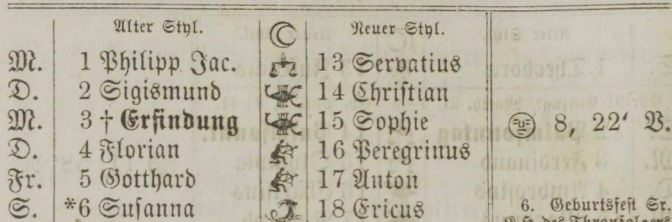 Alter Styl. Neuer Styl.
M. 1 Philipp Jac. 13 Servatius
D. 2 Sigismund 14 Christian
M. 3 † Erfindung 15 Sophie 8, 22' V.
D. 4 Florian 16 Peregrinus
Fr. 5 Gotthard 17 Anton
S. *6 Susanna 18 Ericus 6. Geburtsfest Sr.